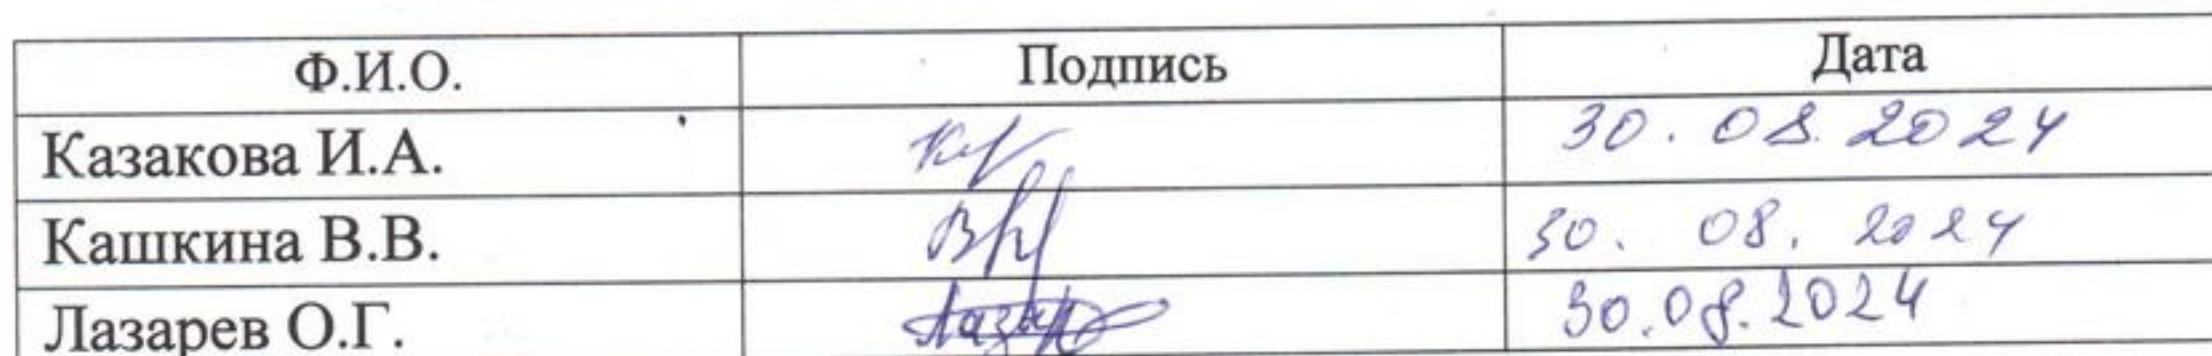 Ф.И.О. Подпись Дата
Казакова И.А. 30.08.2024
Кашкина В.В. 30. 08. 2024
Лазарев О.Г. 30.08.2024